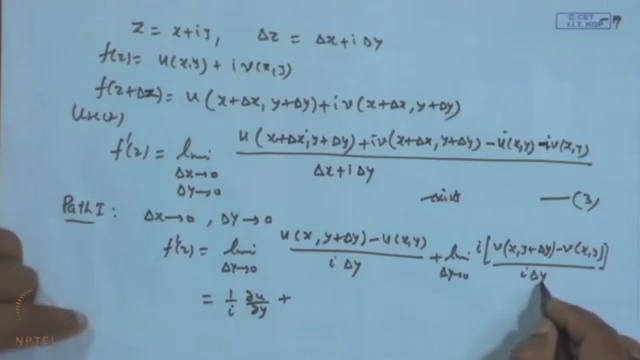 © CET
I.I.T. KGP
z = x+iy, Δz = Δx+iΔy
f(z) = u(x,y) + iv(x,y)
f(z+Δz) = u(x+Δx, y+Δy) + iv(x+Δx, y+Δy)
f'(z) = lim Δx→0 Δy→0 u(x+Δx, y+Δy) + iv(x+Δx, y+Δy) - u(x,y) - iv(x,y) / Δx + iΔy
exists —(3)
Path I: Δx→0, Δy→0
f'(z) = lim Δy→0 u(x, y+Δy) - u(x,y) / iΔy + lim Δy→0 i[v(x, y+Δy) - v(x,y)] / iΔy
= 1/i ∂u/∂y +
NPTEL